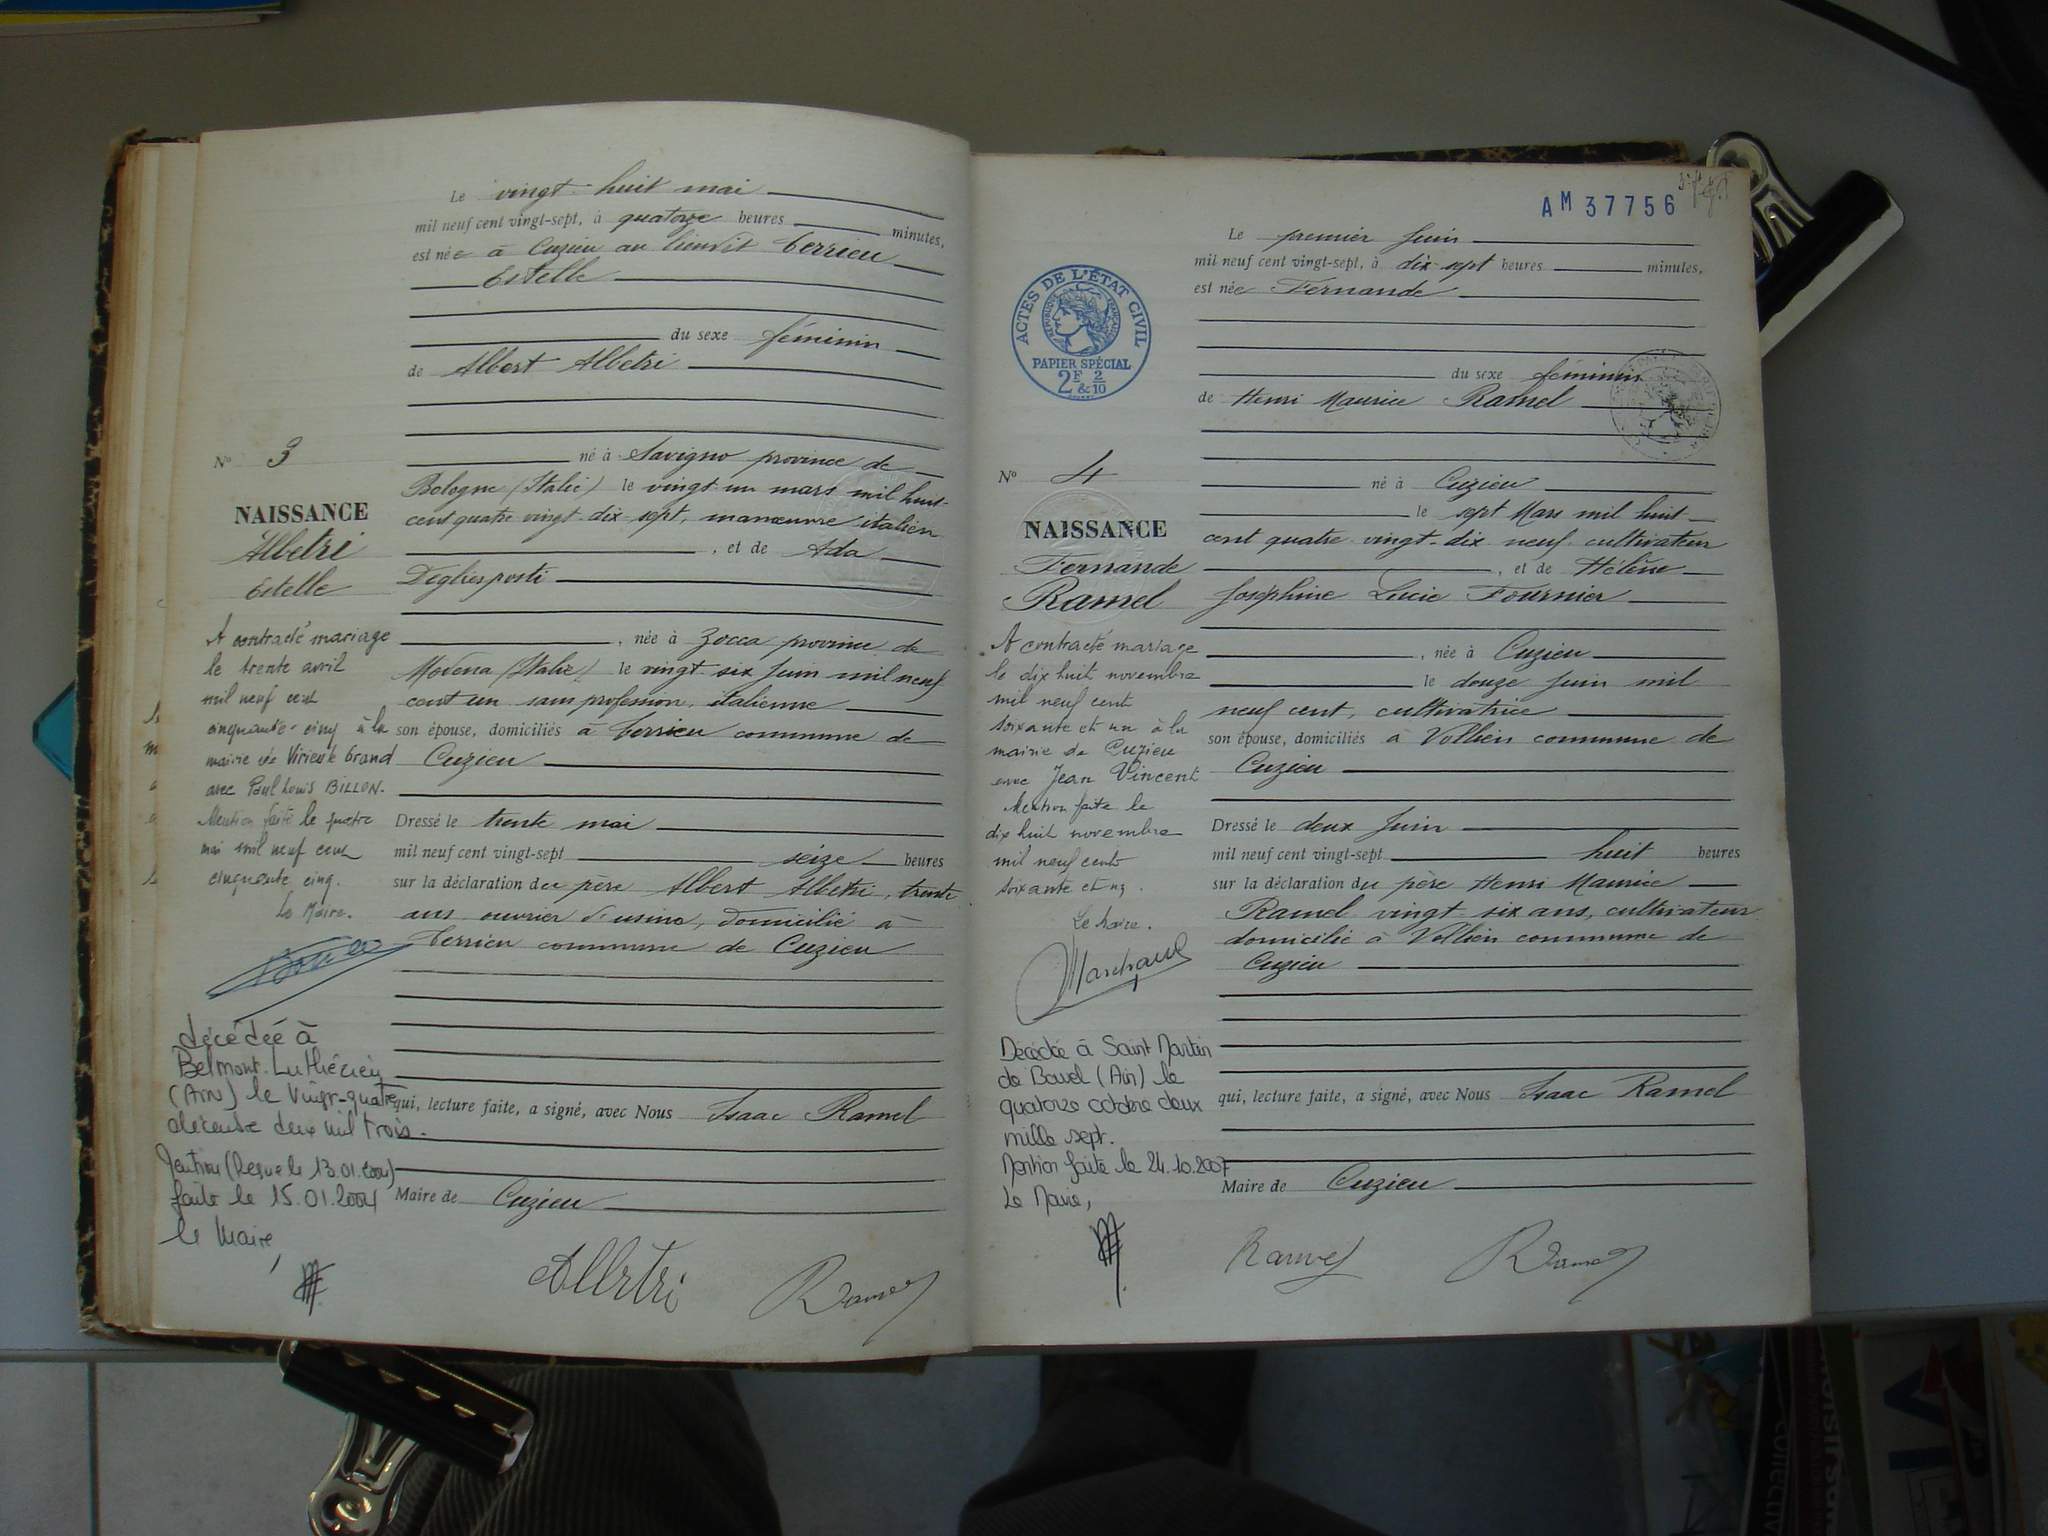 Le vingt-huit mai
mil neuf cent vingt-sept, à quatorze heures minutes,
est née à Cuzieu au lieudit Cerrieu
Estelle
du sexe féminin
de Albert Albetri
né à Savigno province de
Bologne (Italie) le vingt un mars mil huit
cent quatre vingt-dix-sept, manœuvre italien
, et de Ada
Deglisposti
, née à Zocca province de
Modena (Italie) le vingt six Juin mil neuf
cent un sans profession, italienne
son épouse, domiciliés à Cerrieu commune de
Cuzieu
Dressé le trente mai
mil neuf cent vingt-sept seize heures
sur la déclaration du père Albert Albetri, trente
ans ouvrier d'usine, domicilié à
Cerrieu commune de Cuzieu
qui, lecture faite, a signé, avec Nous Isaac Ramel
Maire de Cuzieu
Albetri Ramel
N° 3
NAISSANCE
Albetri
Estelle
A contracté mariage
le trente avril
mil neuf cent
cinquante-cinq à la
mairie de Virieu le Grand
avec Paul Louis BILLON.
Mention faite le quatre
mai mil neuf cent
cinquante cinq.
Le Maire.
décédée à
Belmont-Luthézieu
(AIN) le Vingt-quatre
décembre deux mil trois.
Mention (Reçue le 13.01.2004)
faite le 15.01.2004
le Maire,
AM 37756
ACTES DE L'ÉTAT CIVIL
RÉPUBLIQUE FRANÇAISE
PAPIER SPÉCIAL
2F & 2/10
Le premier Juin
mil neuf cent vingt-sept, à dix-sept heures minutes,
est née Fernande
du sexe féminin
de Henri Maurice Ramel
né à Cuzieu
le sept Mars mil huit
cent quatre vingt-dix neuf cultivateur
, et de Hélène
Joséphine Lucie Fournier
, née à Cuzieu
le douze Juin mil
neuf cent, cultivatrice
son épouse, domiciliés à Vollien commune de
Cuzieu
Dressé le deux Juin
mil neuf cent vingt-sept huit heures
sur la déclaration du père Henri Maurice
Ramel vingt-six ans, cultivateur
domicilié à Vollien commune de
Cuzieu
qui, lecture faite, a signé, avec Nous Isaac Ramel
Maire de Cuzieu
Ramel Ramel
N° 4
NAISSANCE
Fernande
Ramel
A contracté mariage
le dix huit novembre
mil neuf cent
soixante et un à la
mairie de Cuzieu
avec Jean Vincent
Mention faite le
dix huit novembre
mil neuf cent
soixante et un.
Le Maire.
Marchand
Décédée à Saint Martin
de Bavel (Ain) le
quatorze octobre deux
mille sept.
Mention faite le 24.10.2007
Le Maire,